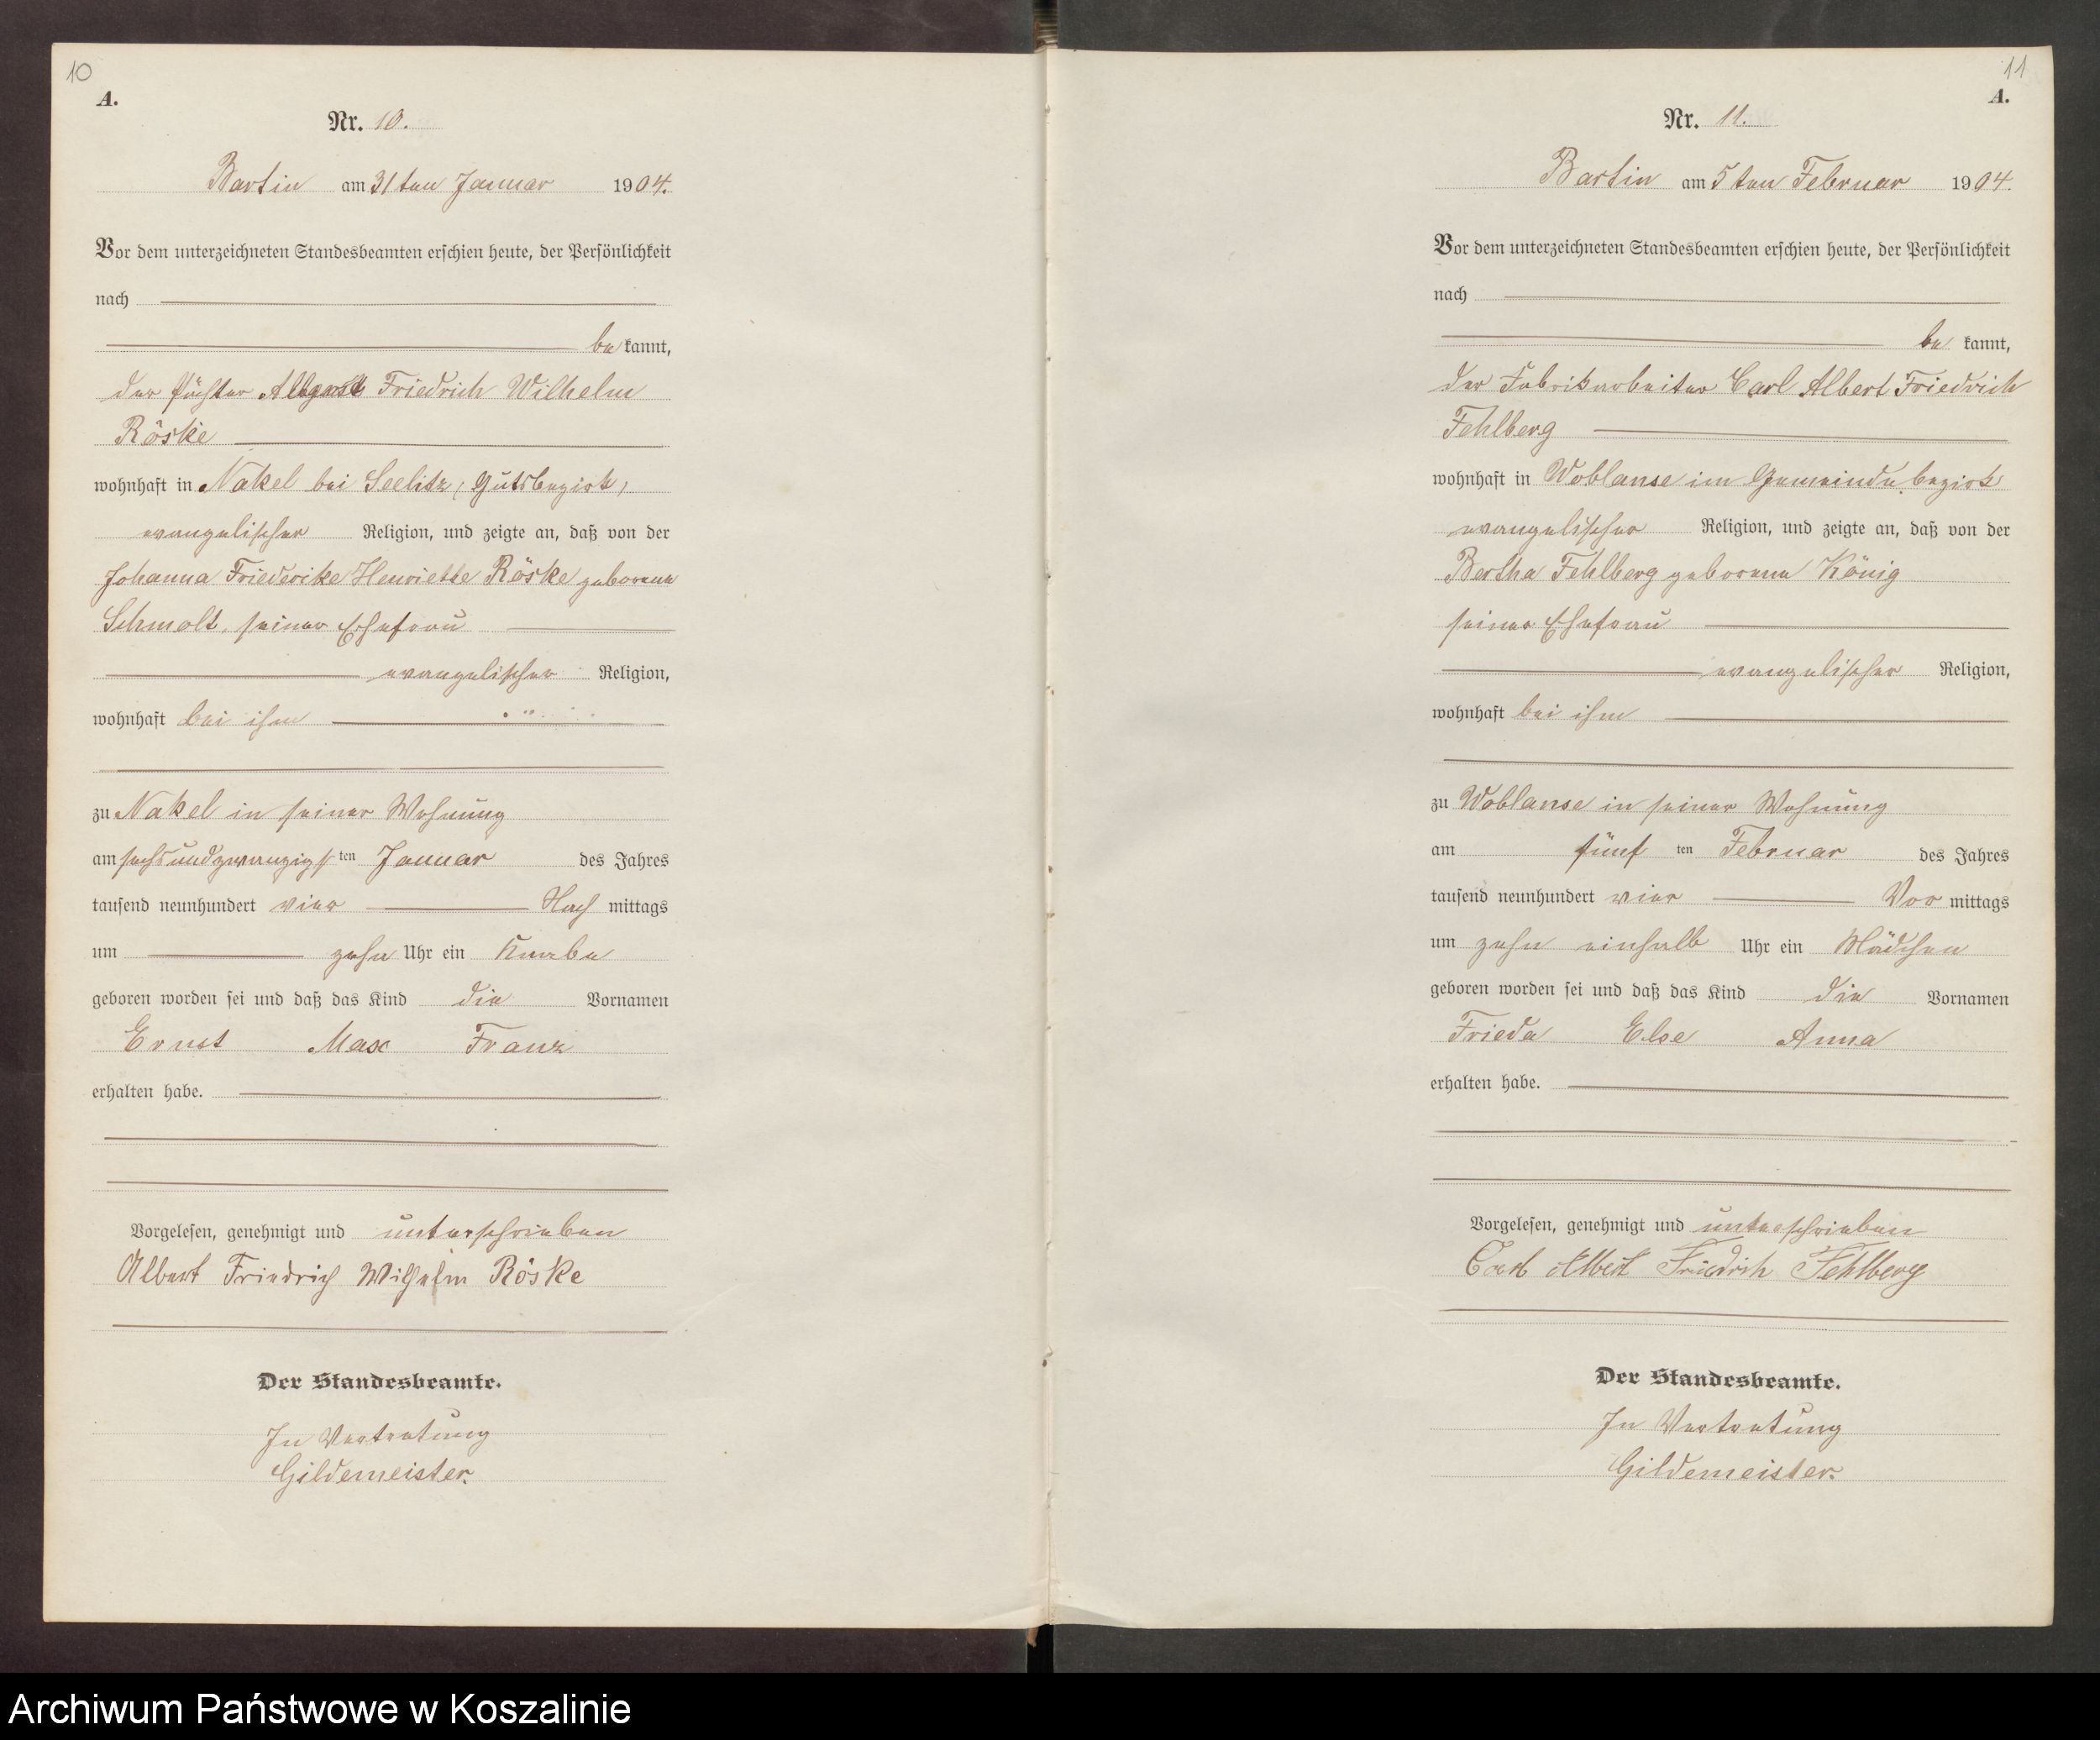 10
A.
Nr. 10.
Bartin am 31ten Januar 1904.
Vor dem unterzeichneten Standesbeamten erschien heute, der Persönlichkeit
nach
bekannt,
der Friedrich Wilhelm
Röske
wohnhaft in Nakel bei Seelitz, Gutsbezirk,
evangelischer Religion, und zeigte an, daß von der
Johanna Friederike Henriette Röske geborene
Schmolt, seiner Ehefrau
evangelischer Religion,
wohnhaft bei ihm
zu Nakel in seiner Wohnung
am sechsundzwanzigsten Januar des Jahres
tausend neunhundert vier Nachmittags
um zehn Uhr ein Knabe
geboren worden sei und daß das Kind die Vornamen
Ernst Max Franz
erhalten habe.
Vorgelesen, genehmigt und unterschrieben
Albert Friedrich Wilhelm Röske
Der Standesbeamte.
In Vertretung
Gildemeister.
11
A.
Nr. 11.
Bartin am 5ten Februar 1904.
Vor dem unterzeichneten Standesbeamten erschien heute, der Persönlichkeit
nach
bekannt,
der Fabrikarbeiter Carl Albert Friedrich
Fehlberg
wohnhaft in Woblanse im Gemeindebezirk
evangelischer Religion, und zeigte an, daß von der
Bertha Fehlberg geborene König
seiner Ehefrau
evangelischer Religion,
wohnhaft bei ihm
zu Woblanse in seiner Wohnung
am fünften Februar des Jahres
tausend neunhundert vier Vormittags
um zehn einhalb Uhr ein Mädchen
geboren worden sei und daß das Kind die Vornamen
Frieda Else Anna
erhalten habe.
Vorgelesen, genehmigt und unterschrieben
Carl Albert Friedrich Fehlberg
Der Standesbeamte.
In Vertretung
Gildemeister.
Archiwum Państwowe w Koszalinie